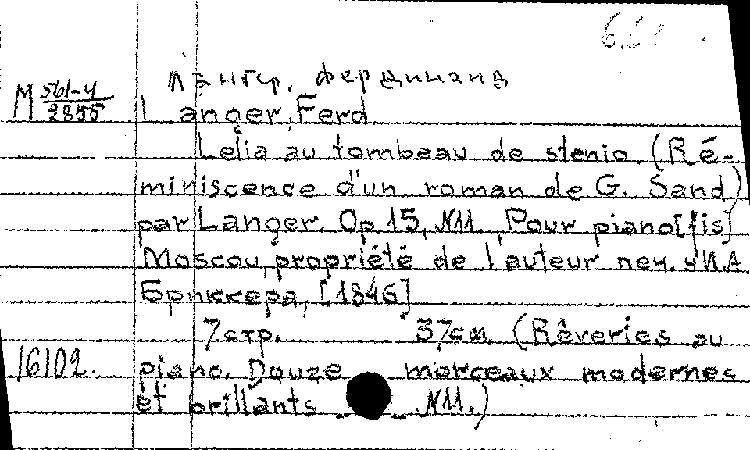 Лангер, Фердинанд
М 561-4/2855
Langer, Ferd.
Lelia au tombeau de stenio (Ré-
miniscence d'un roman de G. Sand)
par Langer. Op 15, №11. Pour piano[fis]
Moscou, propriété de l'auteur печ. у И.А
Бриккера, [1846]
7 стр. 37 см. (Rêveries au
16102. piano. Douze morceaux modernes
et brillants №11.)